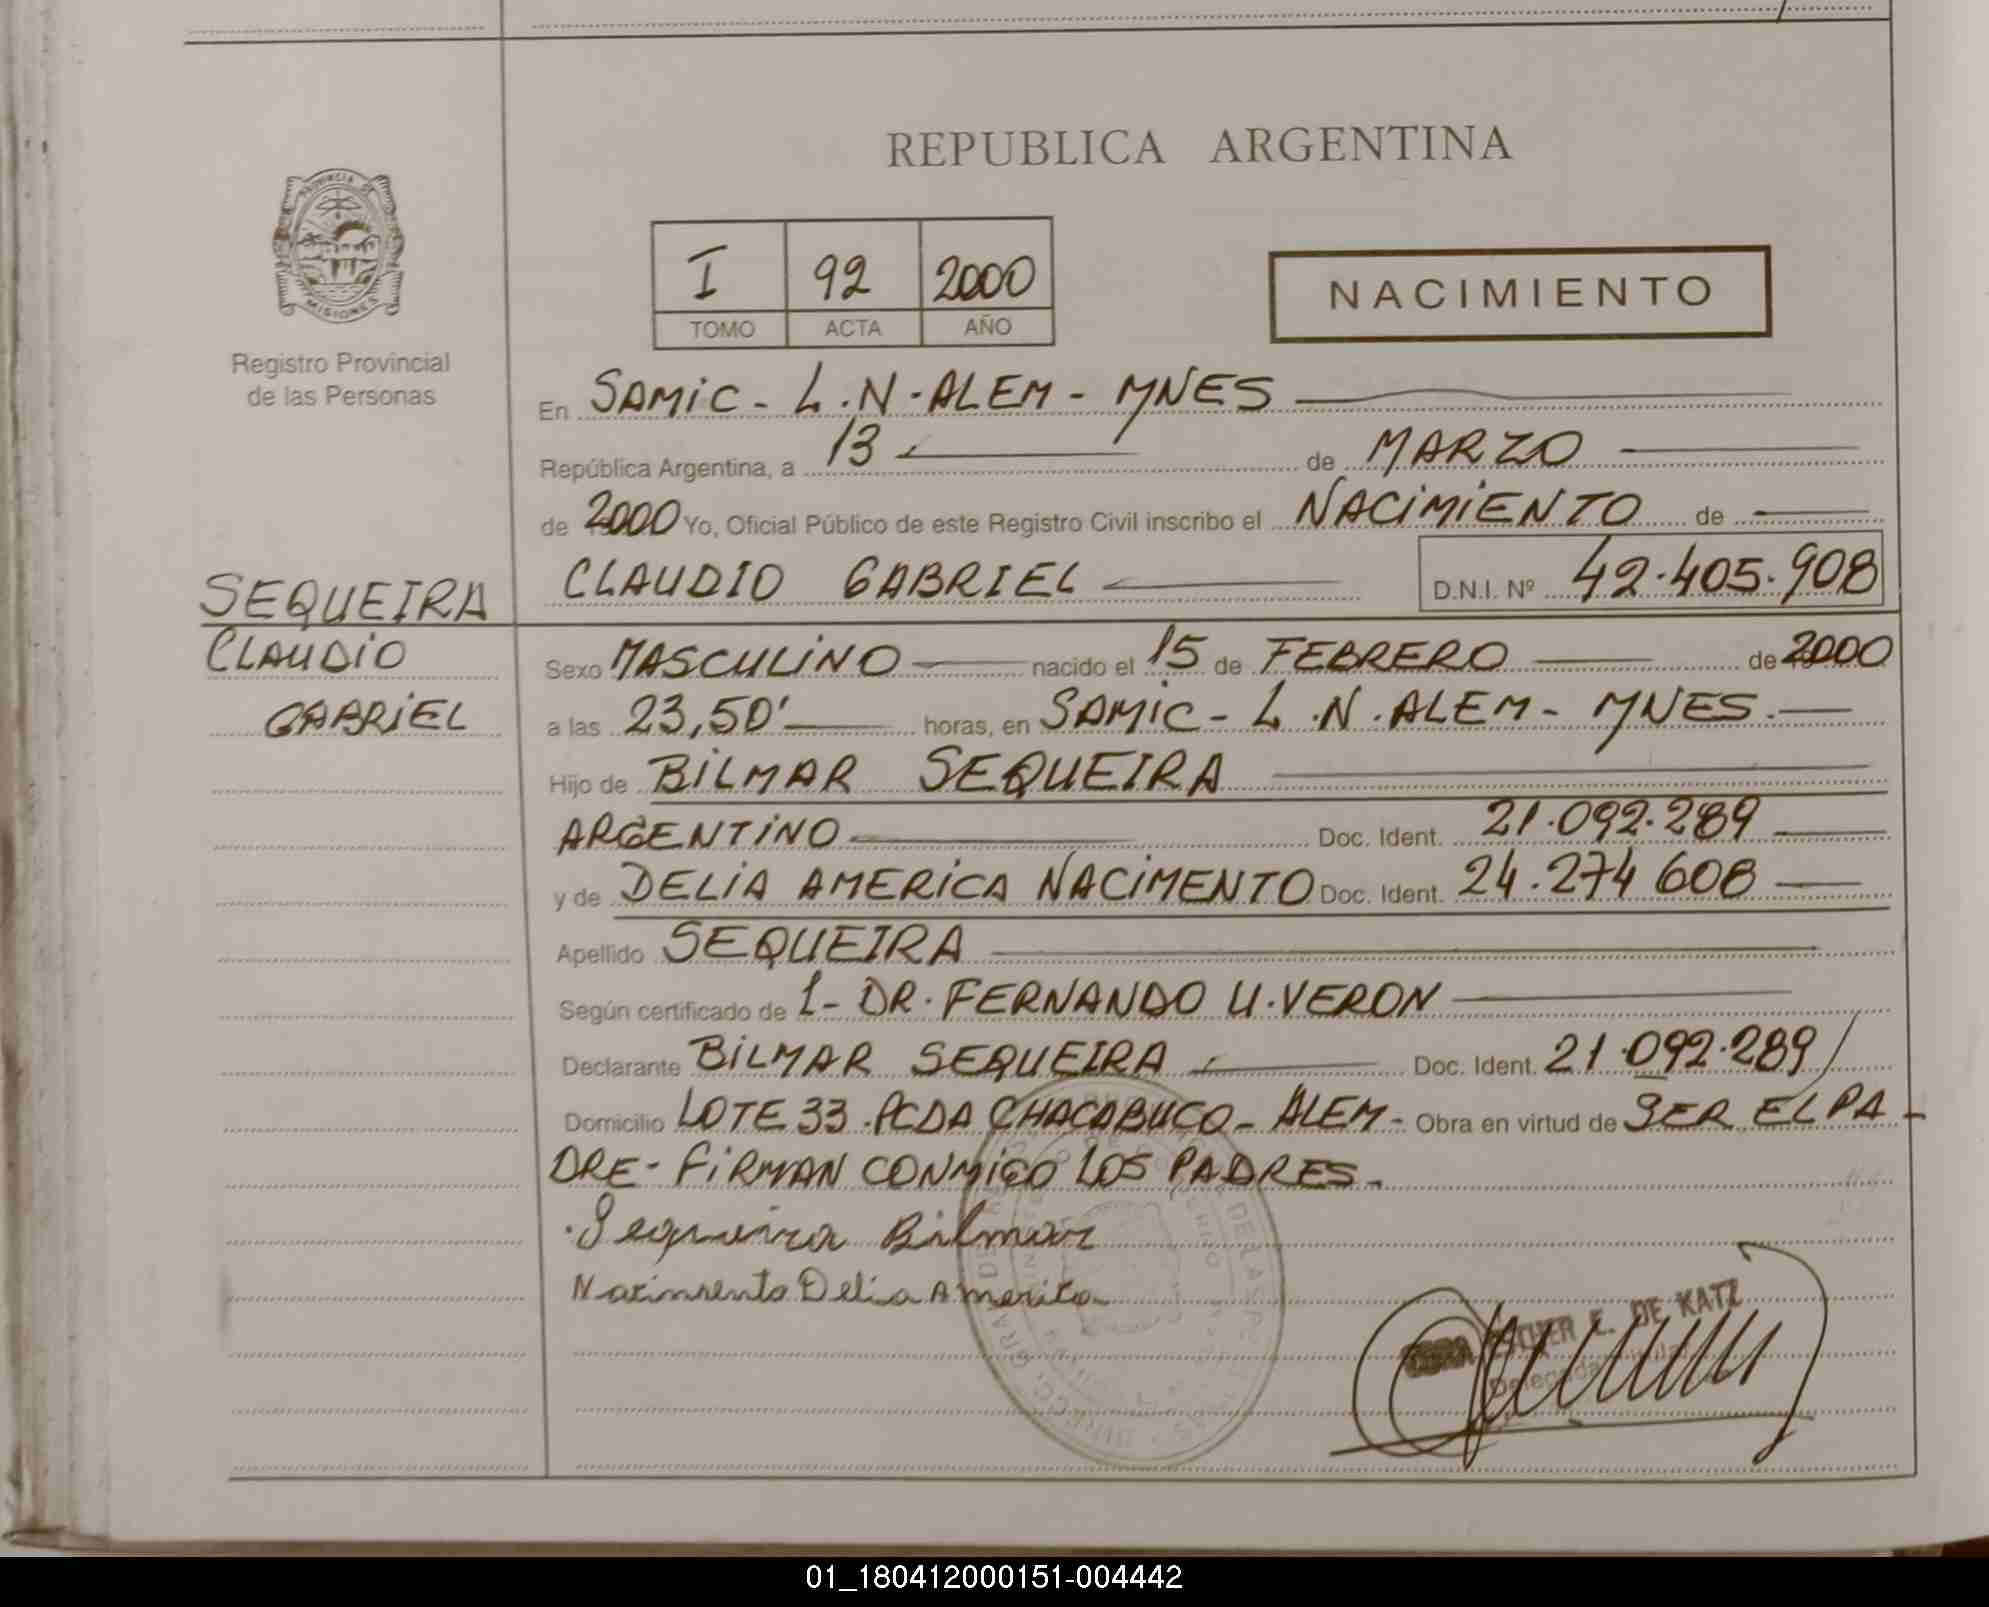 REPUBLICA ARGENTINA
PROVINCIA DE
MISIONES
Registro Provincial
de las Personas
I 92 2000
TOMO ACTA AÑO
NACIMIENTO
En SAMIC - L.N. ALEM - MNES
República Argentina, a 13 de MARZO
de 2000 Yo, Oficial Público de este Registro Civil inscribo el NACIMIENTO de
CLAUDIO GABRIEL D.N.I. Nº 42.405.908
SEQUEIRA
CLAUDIO
GABRIEL
Sexo MASCULINO nacido el 15 de FEBRERO de 2000
a las 23,50' horas, en SAMIC - L.N. ALEM - MNES.
Hijo de BILMAR SEQUEIRA
ARGENTINO Doc. Ident. 21.092.289
y de DELIA AMERICA NACIMENTO Doc. Ident. 24.274 608
Apellido SEQUEIRA
Según certificado de 1- DR. FERNANDO U. VERON
Declarante BILMAR SEQUEIRA Doc. Ident. 21.092.289/
Domicilio LOTE 33. PCDA CHACABUCO - ALEM - Obra en virtud de SER EL PA-
DRE - FIRMAN CONMIGO LOS PADRES.
Sequeira Bilmar
Nacimiento Delia America
ESTHER E. DE KATZ
Delegada
01_180412000151-004442